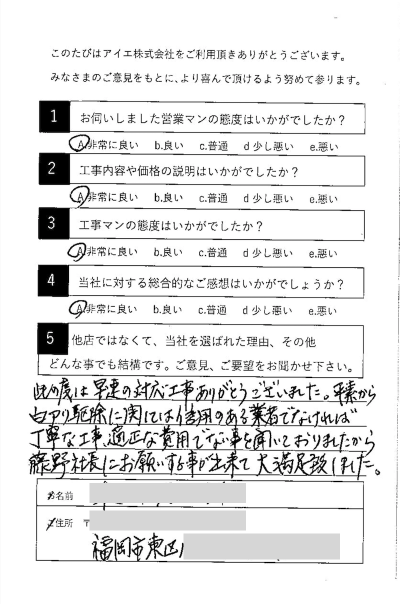 このたびはアイエ株式会社をご利用頂きありがとうございます。
みなさまのご意見をもとに、より喜んで頂けるよう努めて参ります。
1 お伺いしました営業マンの態度はいかがでしたか？
A.非常に良い b.良い c.普通 d 少し悪い e.悪い
2 工事内容や価格の説明はいかがでしたか？
A.非常に良い b.良い c.普通 d 少し悪い e.悪い
3 工事マンの態度はいかがでしたか？
A.非常に良い b.良い c.普通 d 少し悪い e.悪い
4 当社に対する総合的なご感想はいかがでしょうか？
A.非常に良い b.良い c.普通 d 少し悪い e.悪い
5 他店ではなくて、当社を選ばれた理由、その他
どんな事でも結構です。ご意見、ご要望をお聞かせ下さい。
此の度は早速の対応工事ありがとうございました。平素から
白アリ駆除に関しては信用のある業者でなければ
丁寧な工事、適正な費用でない事を聞いておりましたから
藤野社長にお願いする事が出来て大満足致しました。
お名前
ご住所 〒
福岡市東区